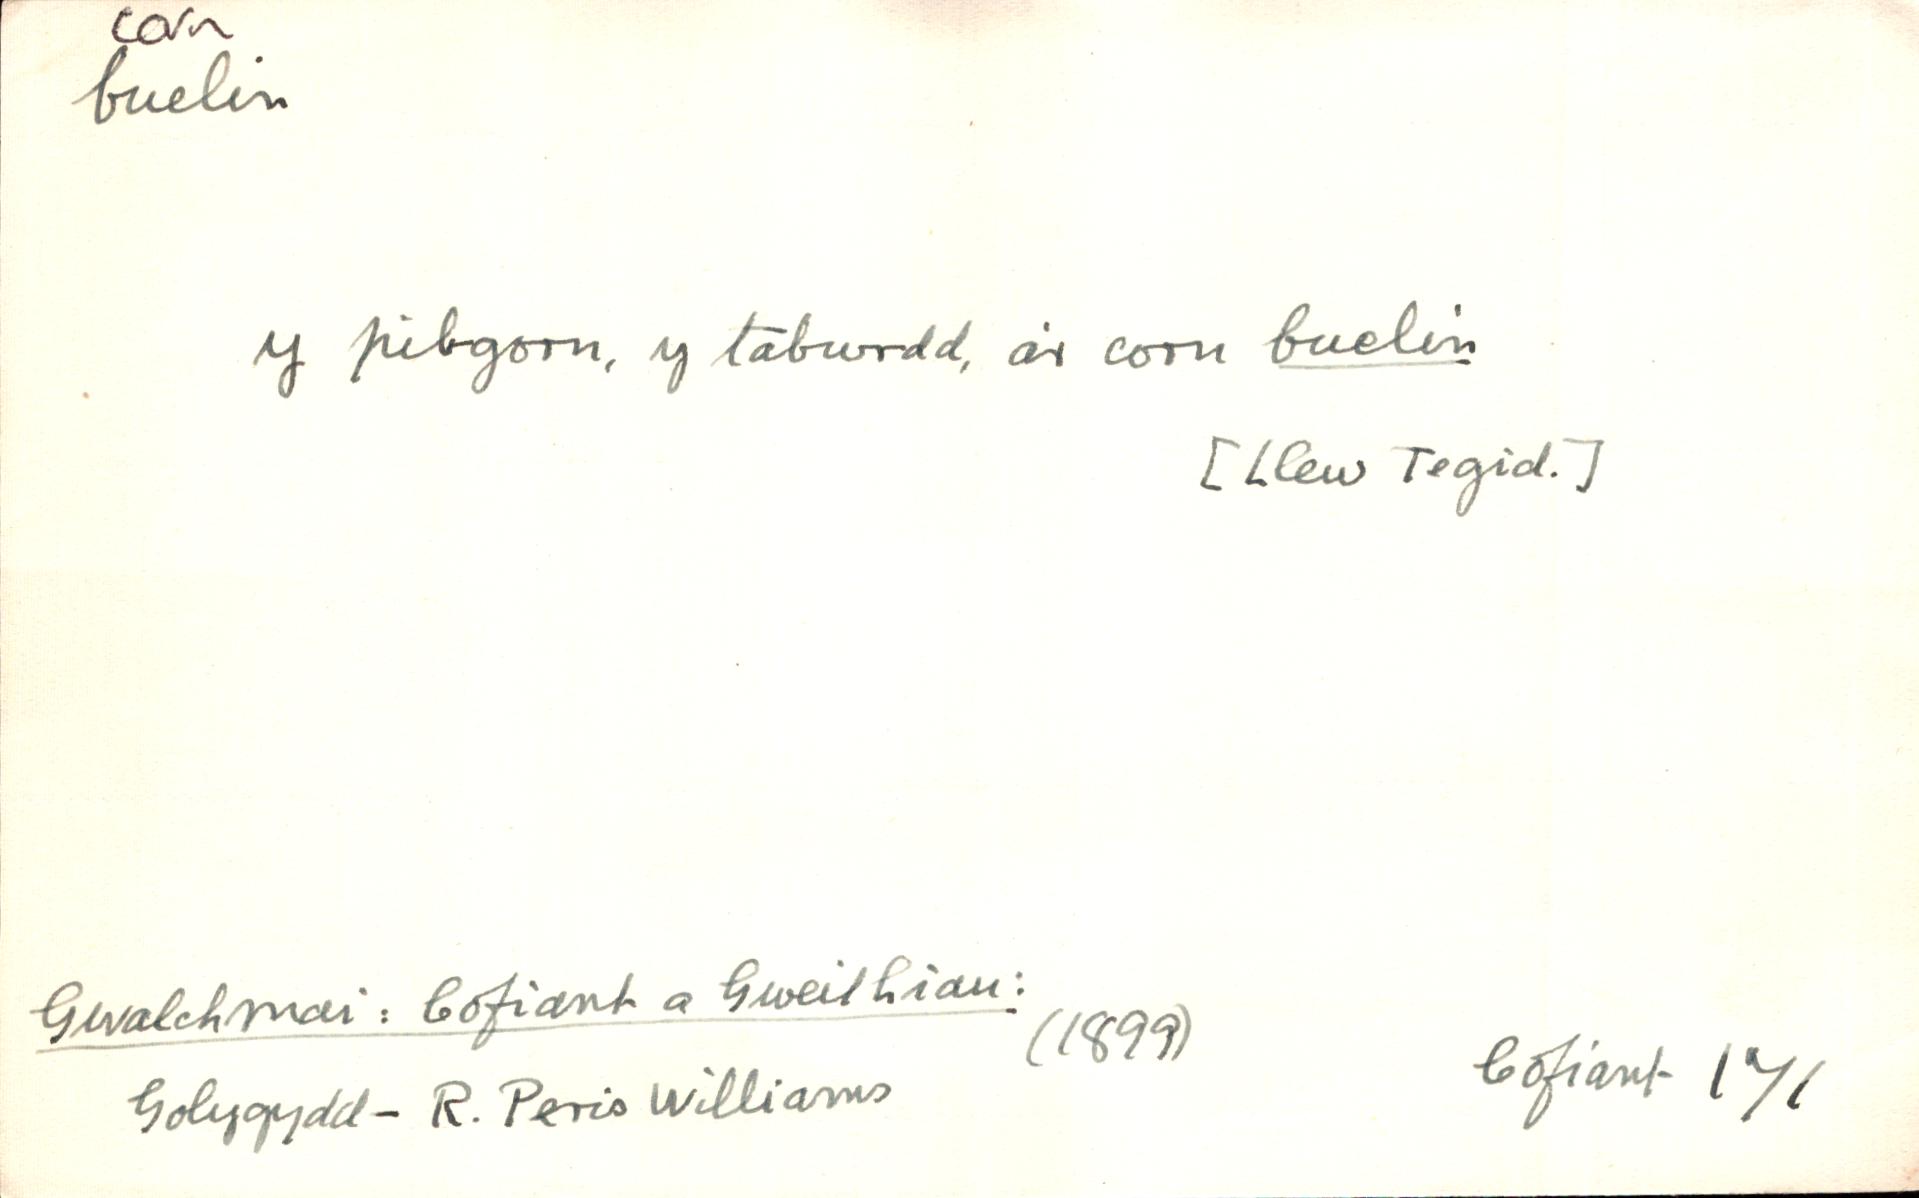 corn
buelin
y pibgorn, y tabwrdd, a'r corn buelin
[Llew Tegid.]
Gwalchmai: Cofiant a Gweithiau:
(1899)
Golygydd - R. Peris Williams
Cofiant 171